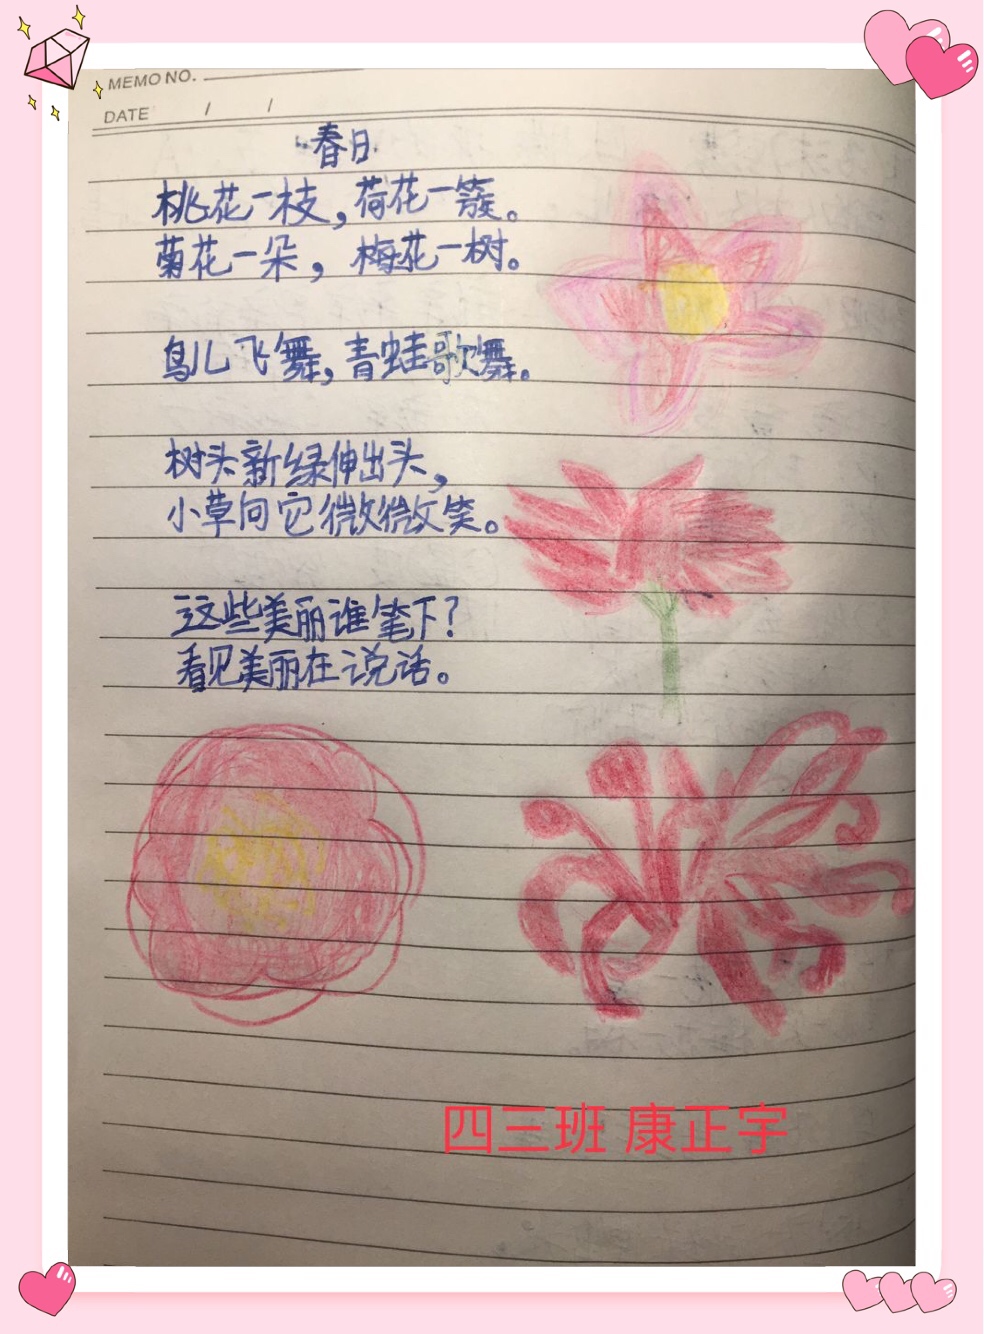 MEMO NO.
DATE / /
春日
桃花一枝，荷花一簇。
菊花一朵，梅花一树。
鸟儿飞舞，青蛙歌舞。
树头新绿伸出头，
小草向它微微笑。
这些美丽谁笔下？
看见美丽在说话。
四三班 康正宇